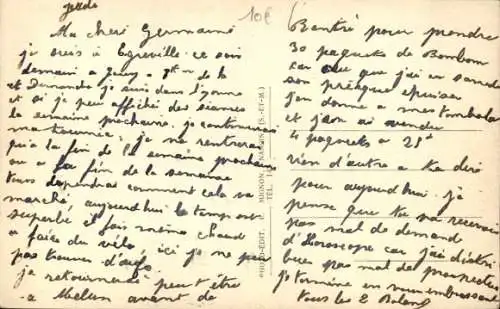 jeudi
10€
Ma chere Germaine
je suis à Egreville ce soir
demain a Jouy 8 de la
et Dimanche je suis dans l'yonne
et si je peu afficher des séances
la semaine prochaine, je continuerai
ma tournée, je ne rentrerai
qu'a la fin de la semaine prochaine
ou a la fin de la semaine
tous dependra comment cela va
marché aujourdhui le temp est
superbe il fais même chaud
a faire du vélo ici je ne peu
pas trouver d'oeufs
je retournerai peut être
a Melun avant de
PHOTO-ÉDIT. MIGNON, NEMOURS (S.-ET-M.)
TÉL. 1
Rentré pour prendre
30 paquets de Bombom
car ceux que j'ai en
son presque épuiser
j'en donne a mes tombola
et j'en ai vendu
4 paquets a 25
rien d'autre a te dire
pour aujourdhui. je
pense que tu va recevoir
pas mal de demand
d'Horoscope car j'ai distri
buer pas mal de prospectus
je termine en vous embrassant
tous les 2 Roland